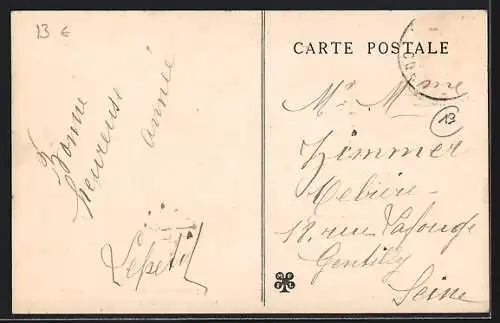 13 €
Bonne
heureuse
année
Lepetit
CARTE POSTALE
Mr Mme
Zimmer
18, rue Lafouge
Gentilly
Seine
13